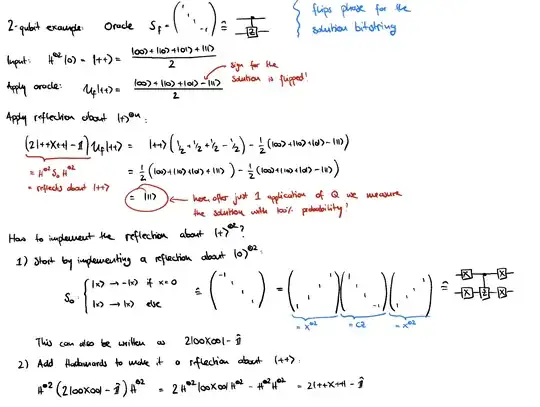 2-qubit example: Oracle S_f = (1 1 1 -1) ≙ Z
flips phase for the
solution bitstring
Input: H^⊗2 |0> = |++> = (|00> + |10> + |01> + |11>) / 2
sign for the
solution is flipped!
Apply oracle: U_f |++> = (|00> + |10> + |01> - |11>) / 2
Apply reflection about |+>^⊗n:
(2|++X++| - 𝟙) U_f |++> = |++> (1/2 + 1/2 + 1/2 - 1/2) - 1/2 (|00> + |10> + |01> - |11>)
= H^⊗2 S_0 H^⊗2
= 1/2 (|00> + |10> + |01> + |11>) - 1/2 (|00> + |10> + |01> - |11>)
= reflects about |++>
= |11>
here, after just 1 application of Q we measure
the solution with 100% probability!
How to implement the reflection about |+>^⊗2?
1) Start by implementing a reflection about |0>^⊗2:
S_0: { |x> → -|x> if x=0
|x> → |x> else
≙ (-1 1 1 1) = (1 1 1 1) (1 1 1 -1) (1 1 1 1) ≙ X X Z X X
= X^⊗2 = CZ = X^⊗2
This can also be written as 2|00X00| - 𝟙
2) Add Hadamards to make it a reflection about |++>:
H^⊗2 (2|00X00| - 𝟙) H^⊗2 = 2 H^⊗2 |00X00| H^⊗2 - H^⊗2 H^⊗2 = 2|++X++| - 𝟙